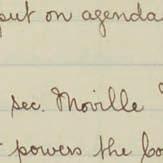 put on agenda
sec. Moville
powers the